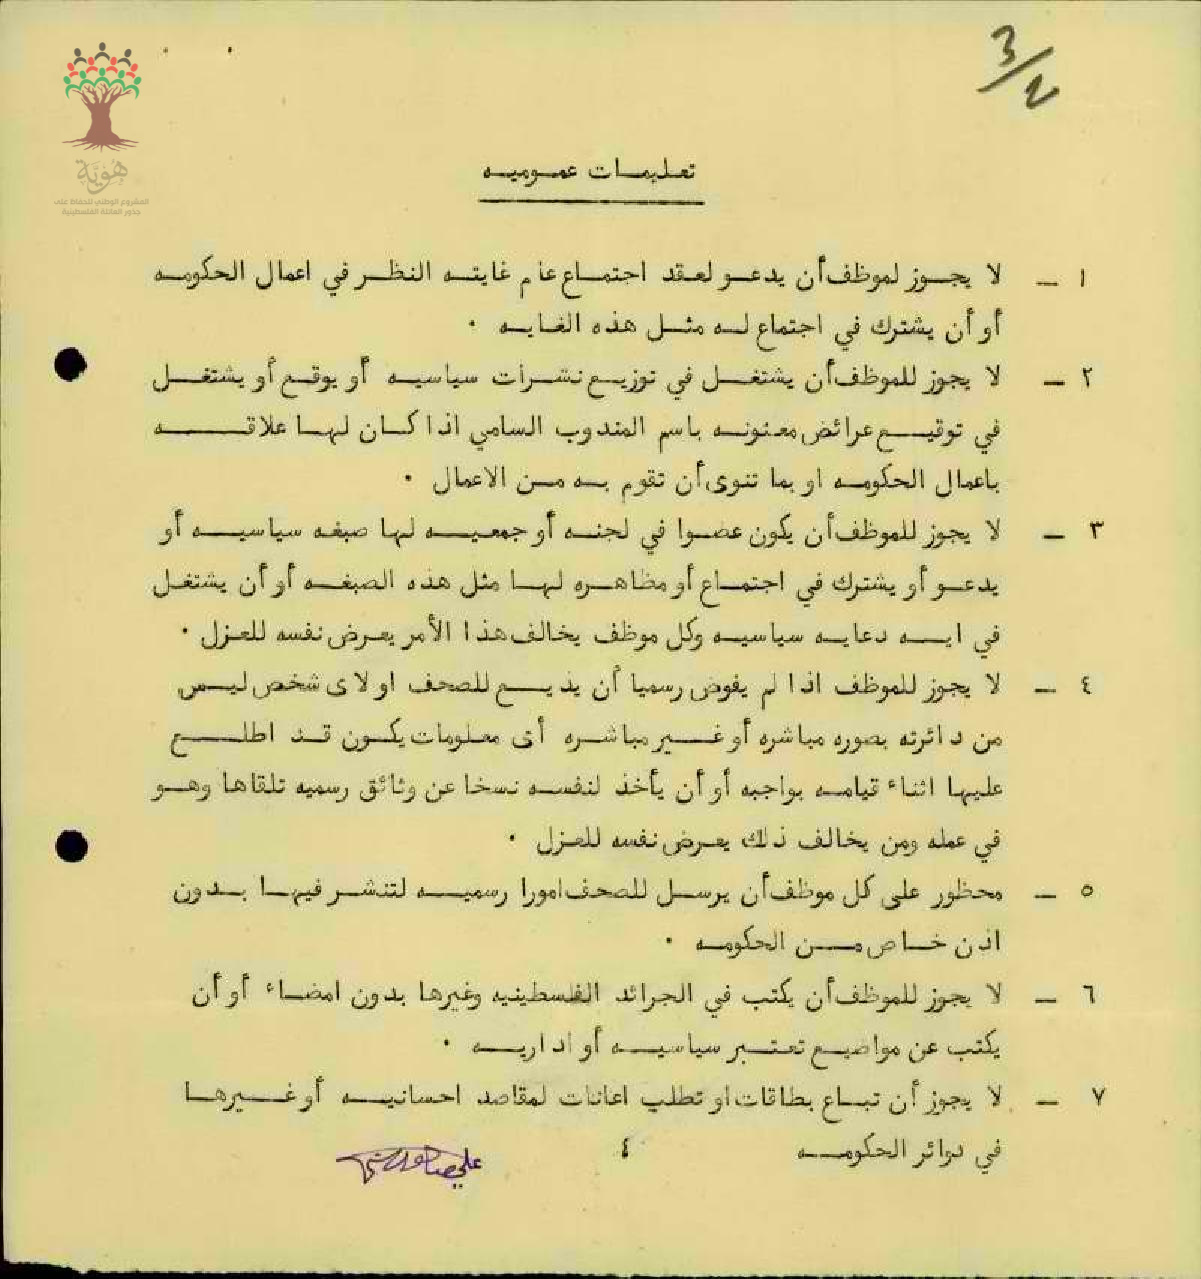 3/2
هُوِيَّة
المشروع الوطني للحفاظ على
جذور العائلة الفلسطينية
تعليمات عموميه
١ — لا يجوز لموظف أن يدعو لعقد اجتماع عام غايته النظر في اعمال الحكومه
أو أن يشترك في اجتماع له مثل هذه الغايه .
٢ — لا يجوز للموظف أن يشتغل في توزيع نشرات سياسيه أو يوقع أو يشتغل
في توقيع عرائض معنونه باسم المندوب السامي اذا كان لها علاقه
باعمال الحكومه او بما تنوى أن تقوم به من الاعمال .
٣ — لا يجوز للموظف أن يكون عضوا في لجنه أو جمعيه لها صبغه سياسيه أو
يدعو أو يشترك في اجتماع أو مظاهره لها مثل هذه الصبغه أو أن يشتغل
في ايه دعايه سياسيه وكل موظف يخالف هذا الأمر يعرض نفسه للعزل .
٤ — لا يجوز للموظف اذا لم يفوض رسميا أن يذيع للصحف او لاى شخص ليس
من دائرته بصوره مباشره أو غير مباشره أى معلومات يكون قد اطلع
عليها اثناء قيامه بواجبه أو أن يأخذ لنفسه نسخا عن وثائق رسميه تلقاها وهو
في عمله ومن يخالف ذلك يعرض نفسه للعزل .
٥ — محظور على كل موظف أن يرسل للصحف امورا رسميه لتنشر فيها بدون
اذن خاص من الحكومه .
٦ — لا يجوز للموظف أن يكتب في الجرائد الفلسطينيه وغيرها بدون امضاء أو أن
يكتب عن مواضيع تعتبر سياسيه أو اداريه .
٧ — لا يجوز أن تباع بطاقات او تطلب اعانات لمقاصد احسانيه أو غيرها
في دوائر الحكومه ٤